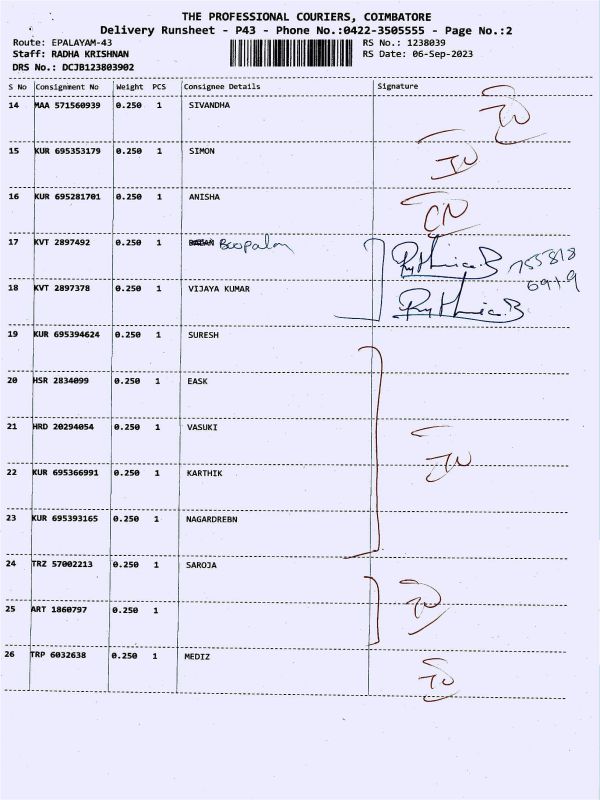 THE PROFESSIONAL COURIERS, COIMBATORE
Delivery Runsheet - P43 - Phone No.:0422-3505555 - Page No.:2
Route: EPALAYAM-43 RS No.: 1238039
Staff: RADHA KRISHNAN RS Date: 06-Sep-2023
DRS No.: DCJB123803902
S No Consignment No Weight PCS Consignee Details Signature
14 MAA 571560939 0.250 1 SIVANDHA
15 KUR 695353179 0.250 1 SIMON
16 KUR 695281701 0.250 1 ANISHA
17 KVT 2897492 0.250 1 Boopalan Rythmica.B 755818
6919
18 KVT 2897378 0.250 1 VIJAYA KUMAR Rythmica.B
19 KUR 695394624 0.250 1 SURESH
20 HSR 2834099 0.250 1 EASK
21 HRD 20294054 0.250 1 VASUKI
22 KUR 695366991 0.250 1 KARTHIK
23 KUR 695393165 0.250 1 NAGARDREBN
24 TRZ 57002213 0.250 1 SAROJA
25 ART 1860797 0.250 1
26 TRP 6032638 0.250 1 MEDIZ